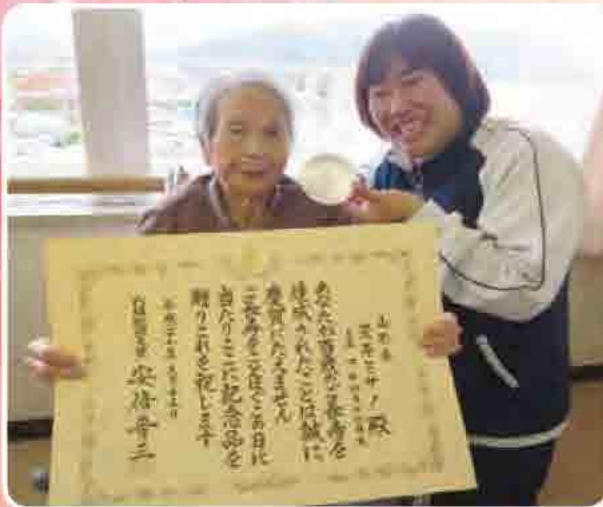 山形県
殿
あなたが百歳のご長寿を
達成されたことは誠に
慶賀にたえません
ご長寿をことほぐこの日に
当たりここに記念品を
贈りこれを祝します
内閣総理大臣 安倍晋三